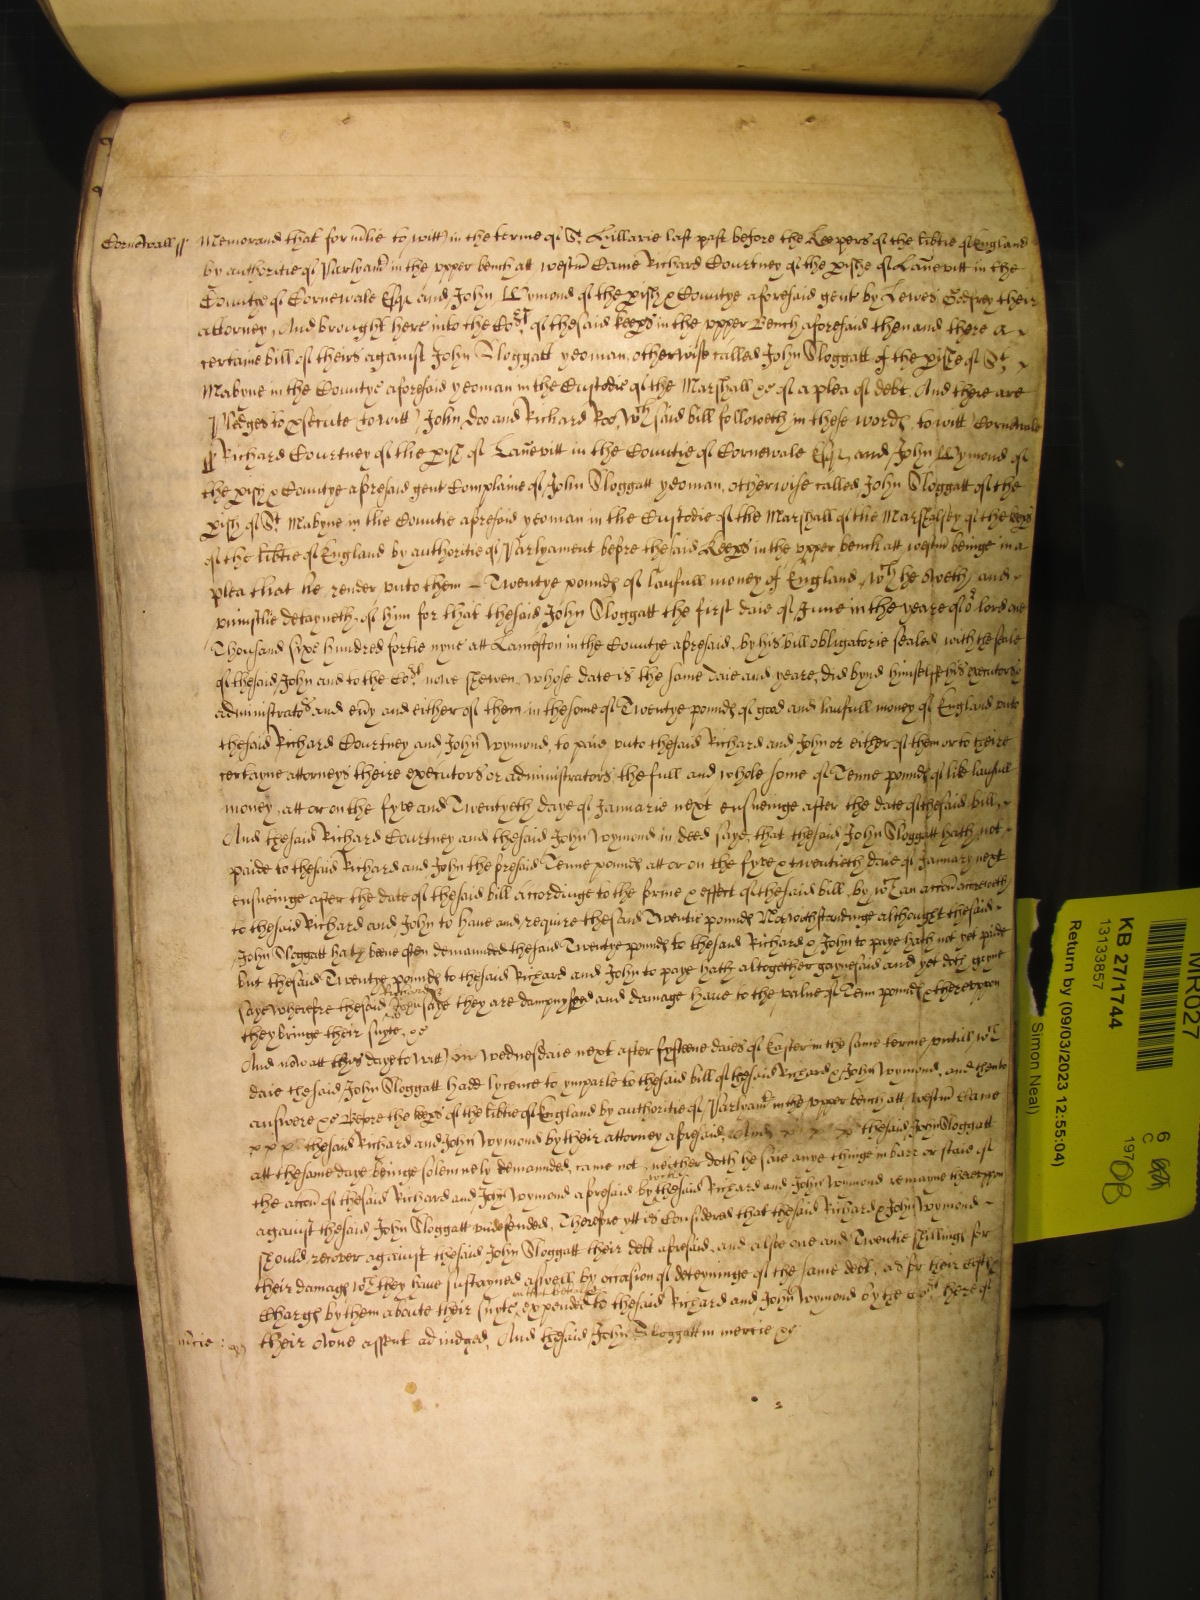 Cornewall ss Memorand that formlie to witt in the terme of St Hillarie last past before the Keepers of the libtie of England
by authoritie of Parlyamt in the vpper bench att westm Came Richard Courtney of the pishe of Lanevitt in the
Countye of Cornewale Esqr and John Wymond of the pish & Countye aforesaid gent by Lewes Godfrey their
attorney, And brought here into the Cort of the said keeps in the vpper Bench aforesaid then and there a
certaine bill of theirs against John Sloggatt yeoman, otherwise called John Sloggatt of the pishe of St
Mabyne in the Countye aforesaid yeoman in the Custodie of the Marshall &c of a plea of debt. And there are
Pledges to psecute to witt John Doo and Richard Roo, Wch said bill followeth in these words, to witt Cornewale
ss Richard Courtney of the pish of Lanevitt in the Countie of Cornewale Esqr, and John Wymond of
the pish & Countye aforesaid gent Complaine of John Sloggatt yeoman, otherwise called John Sloggatt of the
pish of St Mabyne in the Countie aforesaid yeoman in the Custodie of the Marshall of the Marshalsey of the keeps
of the libtie of England by authoritie of Parlyament before the said Keeps in the vpper bench att westm beinge in a
plea that he render vnto them Twentye pounds of laufull money of England, wch he oweth and
vniustlie detayneth, of him for that the said John Sloggatt the first daie of June in the yeare of or lord one
Thousand sixe hundred fortie nyne att Lanceston in the Countye aforesaid, by his bill obligatorie sealed with the seale
of the said John and to the Cort nowe shewen, whose date is the same daie and yeare, did bynd himselfe his executors
administrators and eny and either of them in the some of Twentye pounds of good and laufull money of England vnto
the said Richard Courtney and John Wymond, to paie vnto the said Richard and John or either of them or to theire
certayne attorneys theire executors or administrators the full and whole some of Tenne pounds of like laufull
money, att or on the fyve and Twentyeth daye of Januarie next ensueinge after the date of the said bill,
And the said Richard Courtney and the said John Wymond in deed saye, that the said John Sloggatt hath not
paide to the said Richard and John the foresaid Tenne pounds att or on the fyve & twentieth daie of January next
ensueinge after the date of the said bill accordinge to the forme & effect of the said bill, by wch an accion accreweth
to the said Richard and John to have and require the said Twentie pounds Notwithstandinge althought the said
John Sloggatt hath beene often demaunded the said Twentye pounds to the said Richard & John to paye hath not yet paide
but the said Twentye pounds to the said Richard and John to paye hath altogether gaynesaid and yet doth gayne
saye Wherefore the said John saye they are dampnyfied and damage have to the value of Tenn pounds & therevpon
they bringe their suyte, &c
And now att this daye to witt on wednesdaie next after fyfteene daies of Easter in thy same terme vntill wch
daie the said John Sloggatt hadd lycence to ymparle to the said bill of the said Richard & John Wymond, and then to
answere &c Before the keeps of the libtie of England by authoritie of Parlyamt in the vpper bench att westm Came
the said Richard and John Wymond by their attorney aforesaid, And the said John Sloggatt
att the same daye beinge solemnely demaunded, came not, neither doth he saie anye thinge in barr or staie of
the accon of the said Richard and John Wymond aforesaid by wch the said Richard and John Wymond remayne therevppon
against the said John Sloggatt vndefended, Therefore ytt is Considered that the said Richard & John Wymond
should recover against the said John Sloggatt their debt aforesaid, and alsoe one and Twentie shillings for
their damags wch they have sustayned aswell by occasion of deteyninge of the same debt, as for their costs
Chargs by them aboute their suyte in that behalfe expended to the said Richard and John Wymond by the Cort here of
mercie : their owne assent adiudged, And the said John Sloggatt in mercie &c
MR027
KB 27/1744
13133857
Return by (09/03/2023 12:55:04)
Simon Neal)
6
C
197